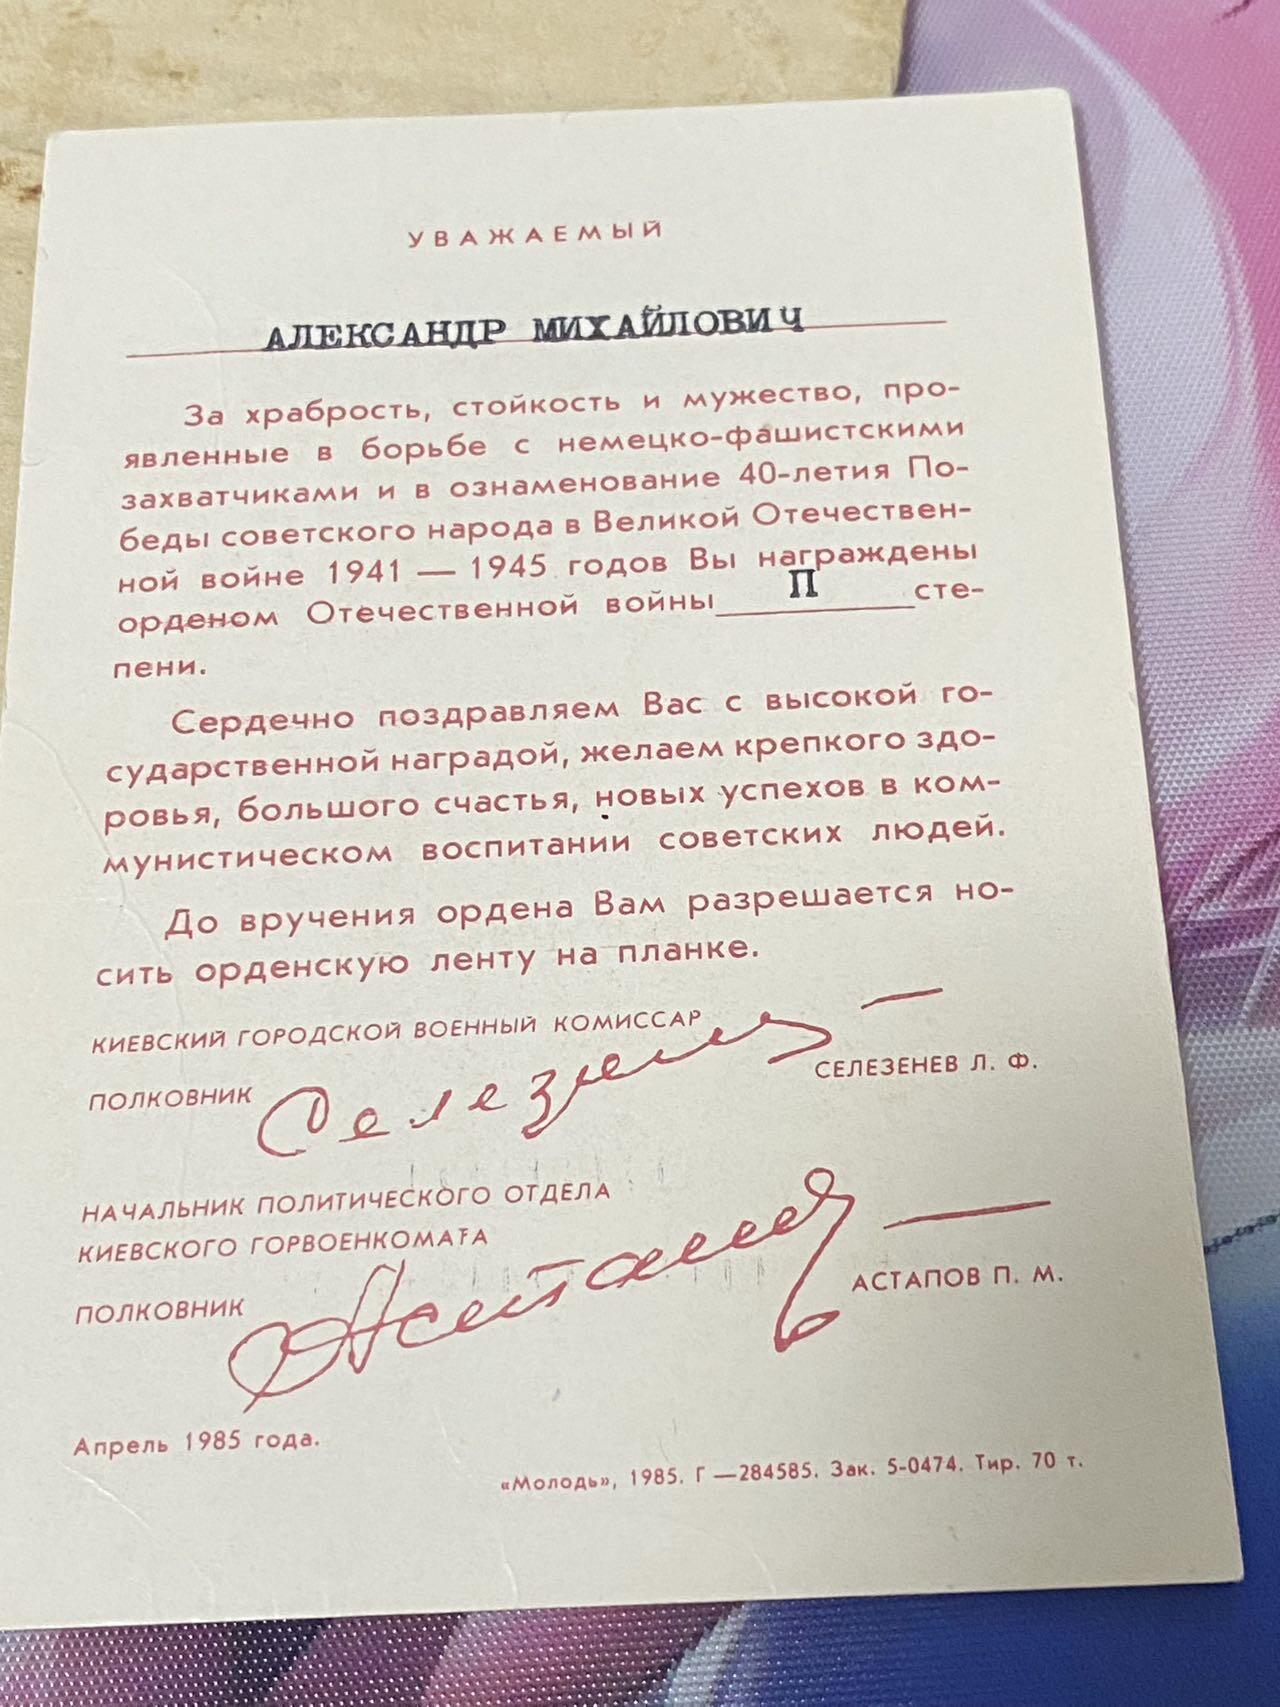 УВАЖАЕМЫЙ
АЛЕКСАНДР МИХАЙЛОВИЧ
За храбрость, стойкость и мужество, про-
явленные в борьбе с немецко-фашистскими
захватчиками и в ознаменование 40-летия По-
беды советского народа в Великой Отечествен-
ной войне 1941 — 1945 годов Вы награждены
орденом Отечественной войны П сте-
пени.
Сердечно поздравляем Вас с высокой го-
сударственной наградой, желаем крепкого здо-
ровья, большого счастья, новых успехов в ком-
мунистическом воспитании советских людей.
До вручения ордена Вам разрешается но-
сить орденскую ленту на планке.
КИЕВСКИЙ ГОРОДСКОЙ ВОЕННЫЙ КОМИССАР
ПОЛКОВНИК Селезнев СЕЛЕЗЕНЕВ Л. Ф.
НАЧАЛЬНИК ПОЛИТИЧЕСКОГО ОТДЕЛА
КИЕВСКОГО ГОРВОЕНКОМАТА
ПОЛКОВНИК Астапов АСТАПОВ П. М.
Апрель 1985 года.
«Молодь», 1985. Г —284585. Зак. 5-0474. Тир. 70 т.